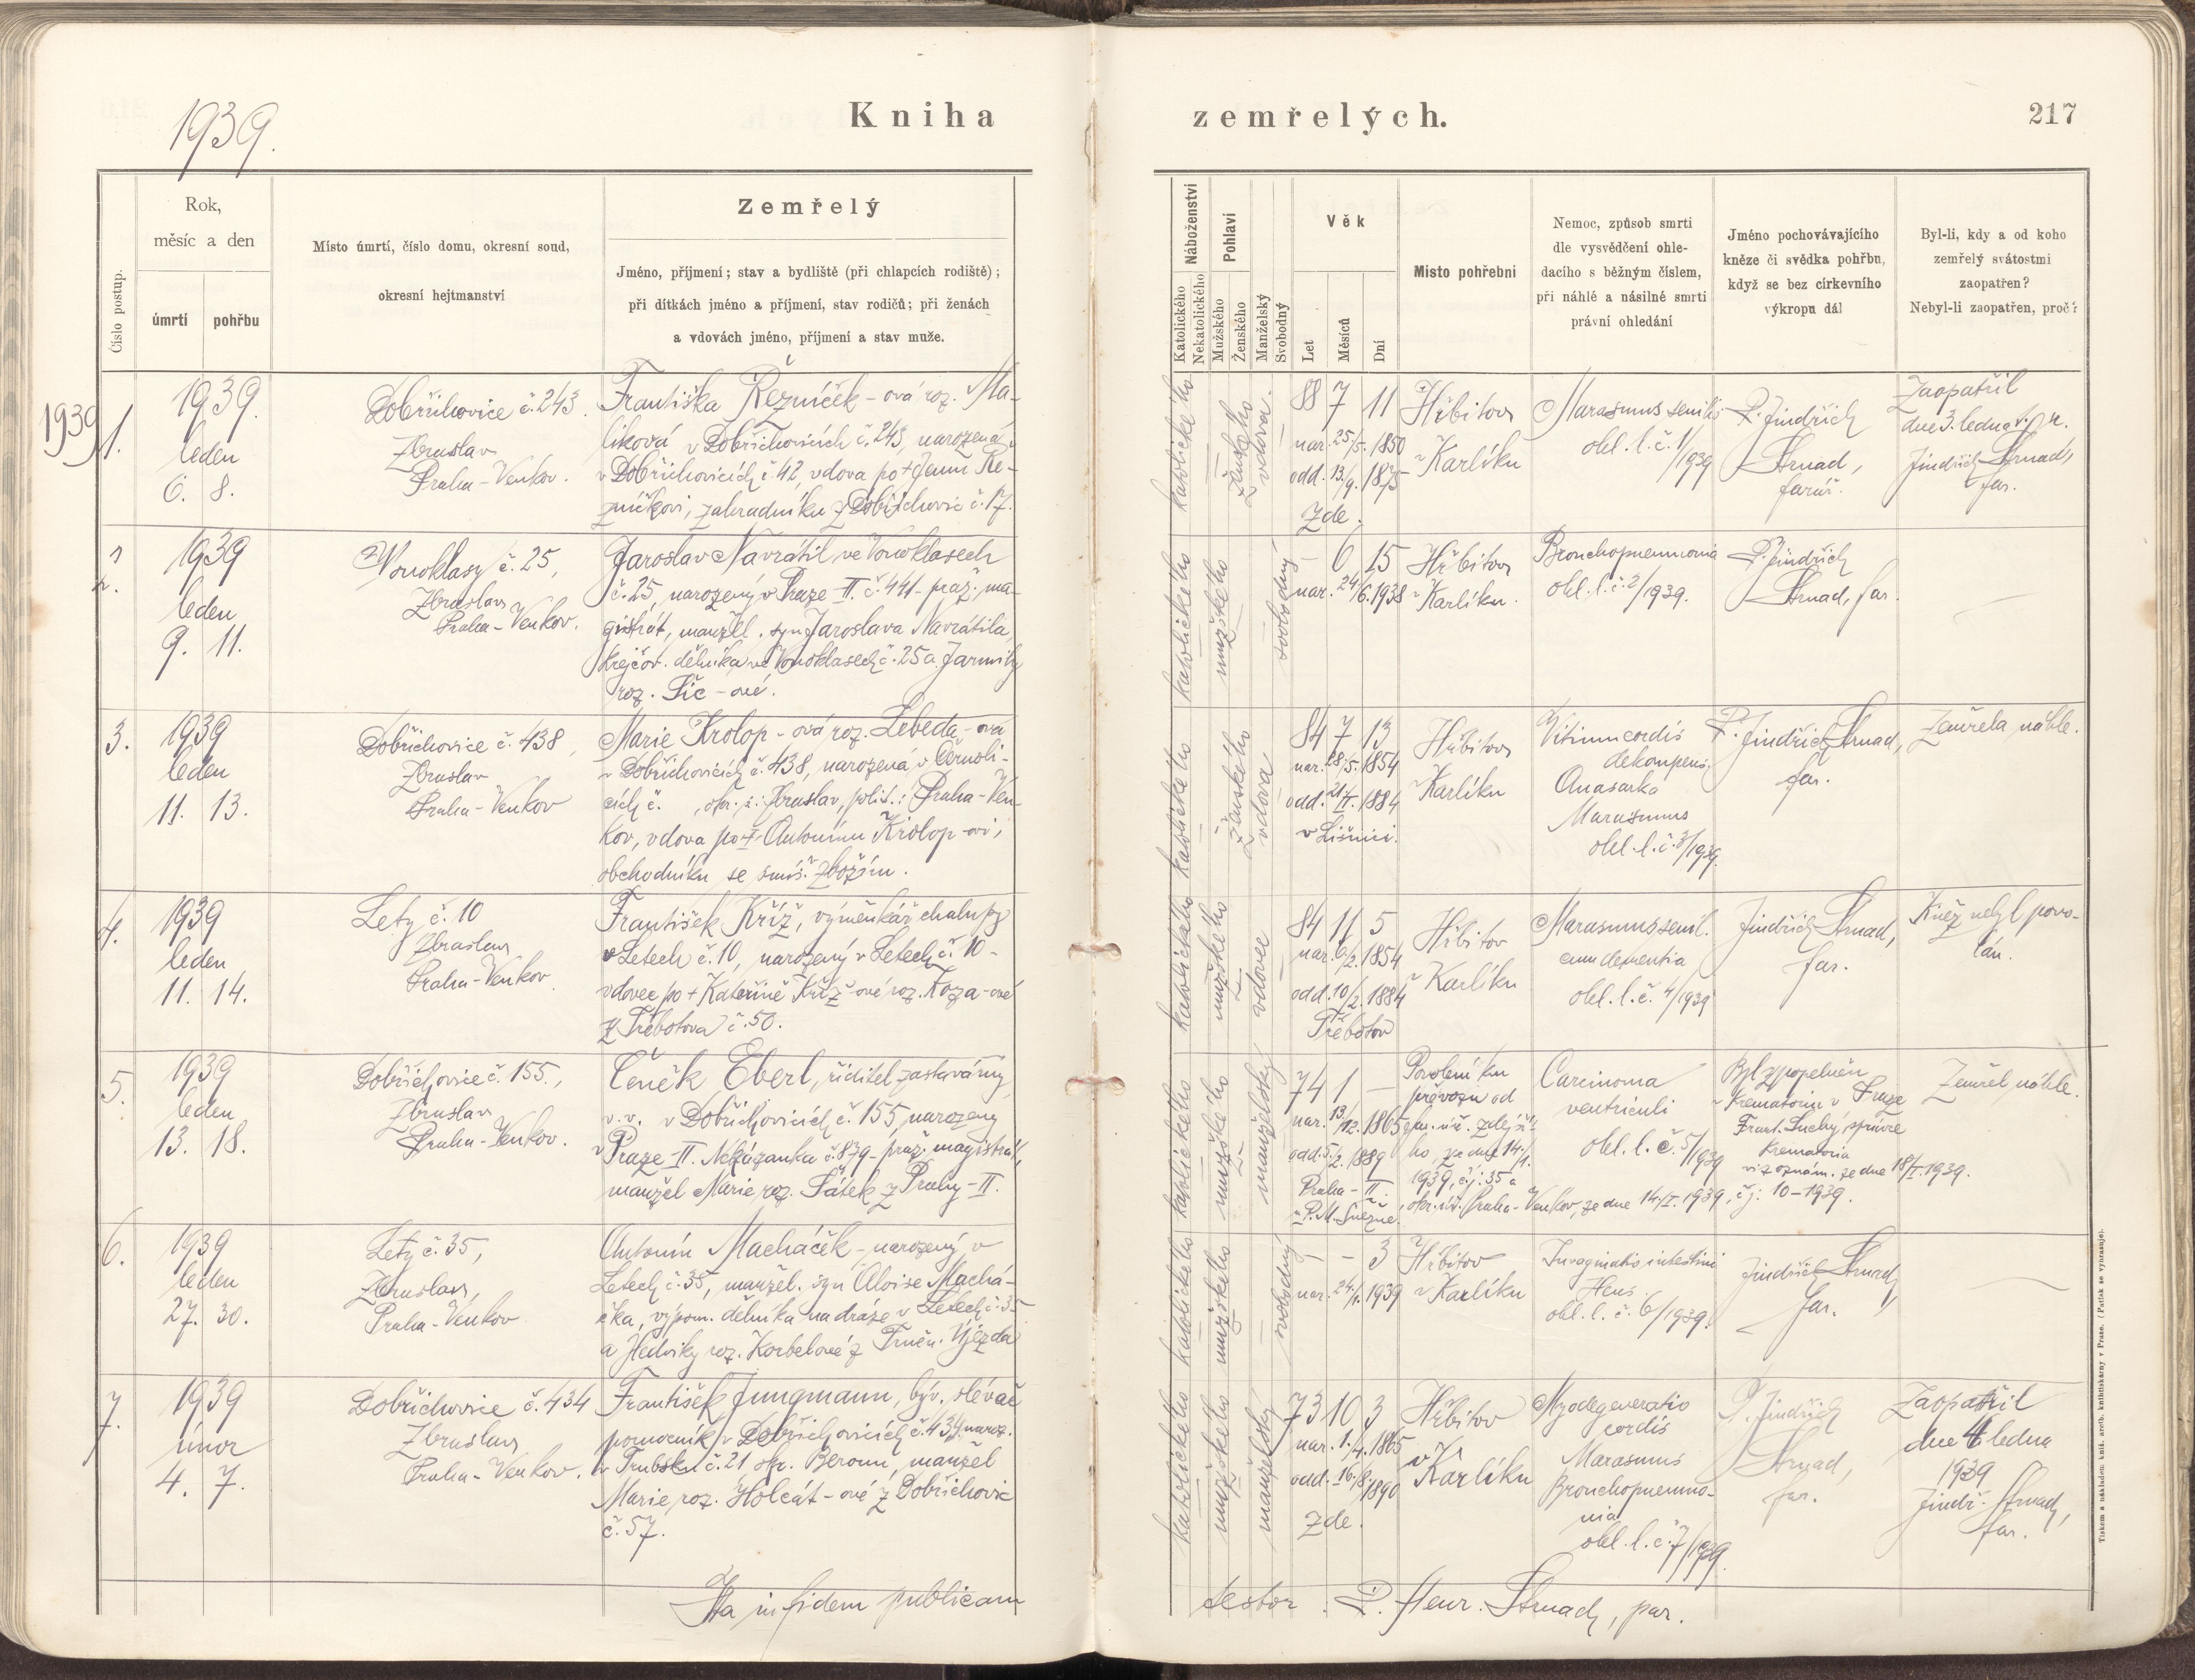 1939.
Kniha zemřelých.
217
Číslo postup.
Rok,
měsíc a den
úmrtí
pohřbu
Místo úmrtí, číslo domu, okresní soud,
okresní hejtmanství
Zemřelý
Jméno, příjmení; stav a bydliště (při chlapcích rodiště);
při dítkách jméno a příjmení, stav rodičů; při ženách
a vdovách jméno, příjmení a stav muže.
Náboženství
Katolického
Nekatolického
Pohlaví
Mužského
Ženského
Manželský
Svobodný
Věk
Let
Měsíců
Dní
Místo pohřební
Nemoc, způsob smrti
dle vysvědčení ohle-
dacího s běžným číslem,
při náhlé a násilné smrti
právní ohledání
Jméno pochovávajícího
kněze či svědka pohřbu,
když se bez církevního
výkropu dál
Byl-li, kdy a od koho
zemřelý svátostmi
zaopatřen?
Nebyl-li zaopatřen, proč?
1939
1.
1939.
leden
6. 8.
Dobřichovice č. 243.
Zbraslav
Praha-Venkov.
Františka Řezníček-ová roz. Ma-
líková v Dobřichovicích č. 243, narozená
v Dobřichovicích č. 42, vdova po + Janu Ře-
zníčkovi, zahradníku z Dobřichovic č. 17.
katolického
ženského
vdova.
88 7 11
nar. 25/5. 1850
odd. 13/9. 1875
Zde.
Hřbitov
v Karlíku
Marasmus senilis
ohl. l. č. 1/1939
P. Jindřich
Strnad,
farář.
Zaopatřil
dne 3. ledna t. r.
Jindřich Strnad,
far.
2.
1939
leden
9. 11.
Vonoklasy č. 25,
Zbraslav
Praha-Venkov.
Jaroslav Navrátil ve Vonoklasech
č. 25, narozený v Praze II. č. 441 - praž. ma-
gistrát, manžel. syn Jaroslava Navrátila,
krejčov. dělníka ve Vonoklasech č. 25 a Jarmily
roz. Šic-ové.
katolického
mužského
svobodný
- 6 15
nar. 24/6. 1938
Hřbitov
v Karlíku.
Bronchopneumonia
ohl. l. č. 2/1939.
P. Jindřich
Strnad, far.
3.
1939
leden
11. 13.
Dobřichovice č. 438,
Zbraslav
Praha-Venkov
Marie Krolop-ová roz. Lebeda-ová
v Dobřichovicích č. 438, narozená v Černoli-
cích č. , okr. s.: Zbraslav, polit.: Praha-Ven-
kov, vdova po + Antonínu Krolop-ovi,
obchodníku se smíš. zbožím.
katolického
ženského
vdova
84 7 13
nar. 28/5. 1854
odd. 1884
v Líšnici.
Hřbitov
v Karlíku
Vitium cordis
dekompens.
Anasarka
Marasmus
ohl. l. č. 3/1939.
P. Jindřich Strnad,
far.
Zemřela náhle.
4.
1939
leden
11. 14.
Lety č. 10
Zbraslav
Praha-Venkov.
František Kříž, výměnkář chalupy
v Letech č. 10, narozený v Letech č. 10 -
vdovec po + Kateřině Kříž-ové roz. Koza-ové
z Třebotova č. 50.
katolického
mužského
vdovec
84 11 5
nar. 6/2. 1854
odd. 10/2. 1884
Třebotov
Hřbitov
v Karlíku
Marasmus senil.
cum dementia
ohl. l. č. 4/1939
Jindřich Strnad,
far.
Kněz nebyl povo-
lán.
5.
1939
leden
13. 18.
Dobřichovice č. 155.,
Zbraslav
Praha-Venkov.
Čeněk Ebert, řiditel zastavárny
v. v. v Dobřichovicích č. 155, narozený
v Praze II. Nekázanka č. 879 - praž. magistrát,
manžel Marie roz. Šátek z Prahy-II.
katolického
mužského
manželský
74 1 -
nar. 13/12. 1865
odd. 5/2. 1889
Praha-II
u P. M. Sněžné.
Povolení ku
převozu od
far. úř. zdejší-
ho, ze dne 14./1.
1939, čj: 35 a
okr. úř. Praha-Venkov, ze dne 14/I. 1939, čj: 10-1939.
Carcinoma
ventriculi
ohl. l. č. 5/1939
Byl zpopelněn
v Krematoriu v Praze
Frant. Suchý, správce
krematoria
viz oznám. ze dne 18/I. 1939.
Zemřel náhle.
6.
1939
leden
27. 30.
Lety č. 35,
Zbraslav,
Praha-Venkov
Antonín Macháček - narozený v
Letech č. 35, manžel. syn Aloise Machá-
čka, výpom. dělníka na dráze v Letech č. 35
a Hedviky roz. Korbelové z Újezda
katolického
mužského
svobodný
- - 3
nar. 24/1. 1939
Hřbitov
v Karlíku
Invaginatio intestini
ohl. l. č. 6/1939.
Jindřich Strnad,
far.
7.
1939
únor
4. 7.
Dobřichovice č. 434
Zbraslav
Praha-Venkov.
František Jungmann, býv. slévač
pomocník v Dobřichovicích č. 434, naroz.
v Trubsku č. 21 okr. Beroun, manžel
Marie roz. Holcát-ové z Dobřichovic
č. 57.
katolického
mužského
manželský
73 10 3
nar. 1./4. 1865
odd. 16./8. 1890
Zde.
Hřbitov
v Karlíku
Myodegeneratio
cordis
Marasmus
Bronchopneumo-
nia
ohl. l. č. 7/1939.
P. Jindřich
Strnad,
far.
Zaopatřil
dne 4 ledna
1939
Jindř. Strnad,
far.
Ita in fidem publicam
testor: P. Henr. Strnad, par.
Tiskem a nákladem kníž. arcib. knihtiskárny v Praze. (Patisk se vyhrazuje).